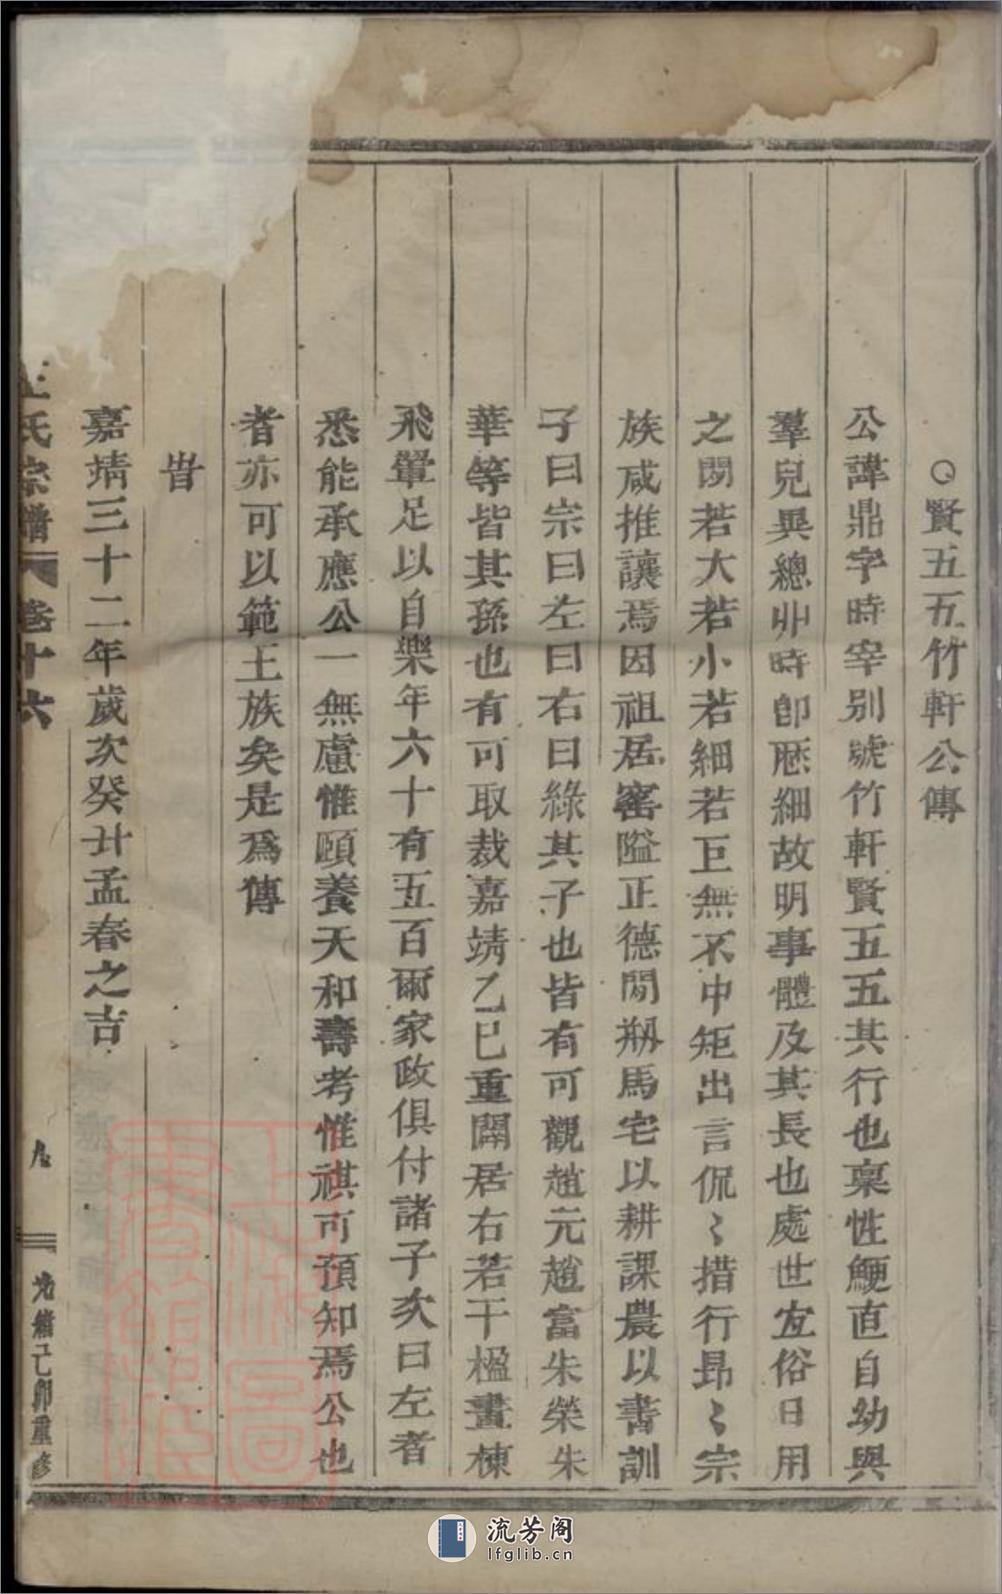 ○賢五五竹軒公傳
公諱鼎字時宰别號竹軒賢五五其行也禀性鯁直自幼與
羣兒異總丱時卽厯細故明事體及其長也處世宜俗日用
之間若大若小若細若巨無不中矩出言侃〻措行昻〻宗
族咸推讓焉因祖居窰隘正德間剏馬宅以耕課農以書訓
子曰宗曰左曰右曰綠其子也皆有可觀趙元趙富朱榮朱
華等皆其孫也有可取裁嘉靖乙巳重闢居右若干楹畫棟
飛翬足以自樂年六十有五百爾家政俱付諸子次曰左者
悉能承應公一無慮惟頤養天和壽考惟祺可預知焉公也
者亦可以範王族矣是爲傳
旹
嘉靖三十二年歲次癸丑孟春之吉
王氏宗譜 卷十六 九 光緒己卯重修
上海圖書館藏
流芳阁
lfglib.cn